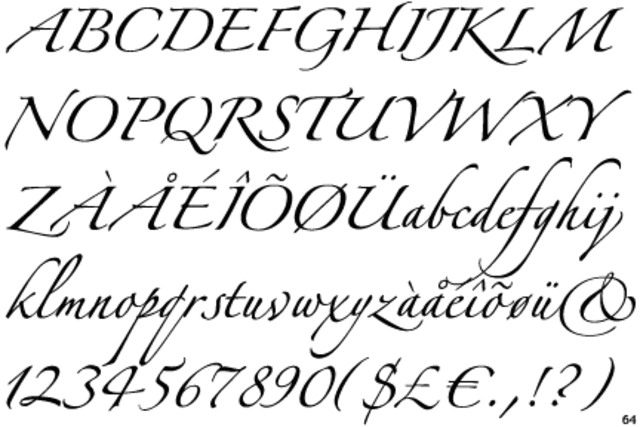 ABCDEFGHIJKLM
NOPQRSTUVWXY
ZÀÅÉÎÕØÜabcdefghij
klmnopqrstuvwxyzàåéîõøü&
1234567890($£€.,!?)
64